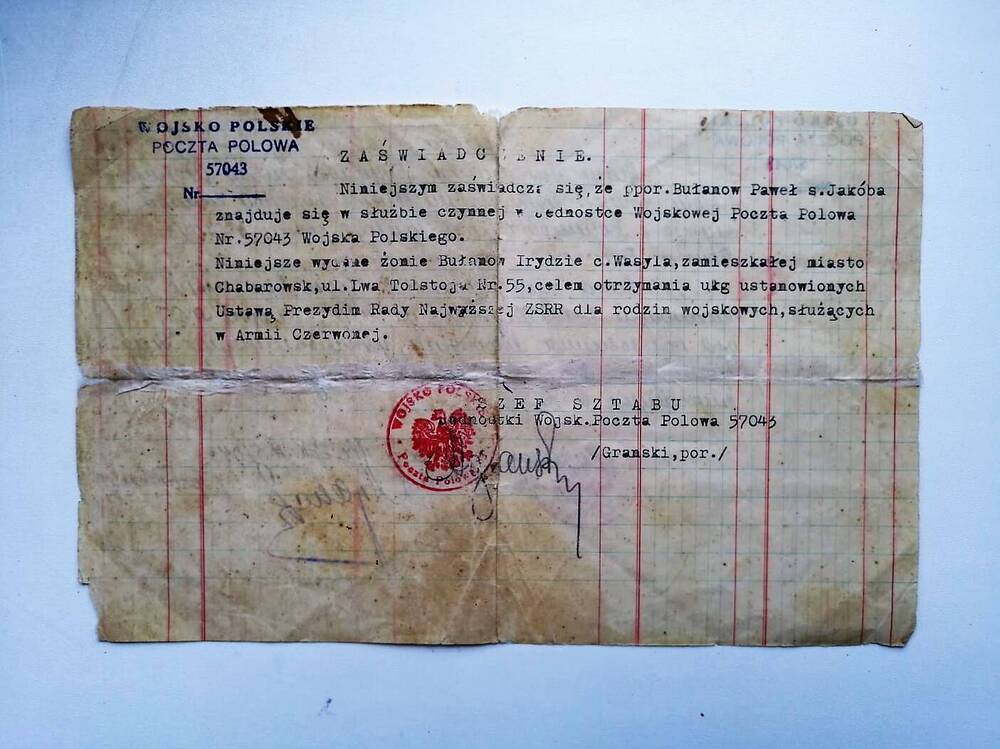 WOJSKO POLSKIE
POCZTA POLOWA
57043
Nr.
ZAŚWIADCZENIE.
Niniejszym zaświadcza się,że ppor.Bułanow Paweł s.Jakóba
znajduje się w służbie czynnej w Jednostce Wojskowej Poczta Polowa
Nr.57043 Wojska Polskiego.
Niniejsze wydane żonie Bułanow Irydzie c.Wasyla,zamieszkałej miasto
Chabarowsk,ul.Lwa Tolstoja Nr.55,celem otrzymania ukg ustanowionych
Ustawą Prezydim Rady Najwyższej ZSRR dla rodzin wojskowych,służących
w Armii Czerwonej.
SZEF SZTABU
Jednostki Wojsk.Poczta Polowa 57043
/Granski,por./
WOJSKO POLSKIE
Poczta Polowa